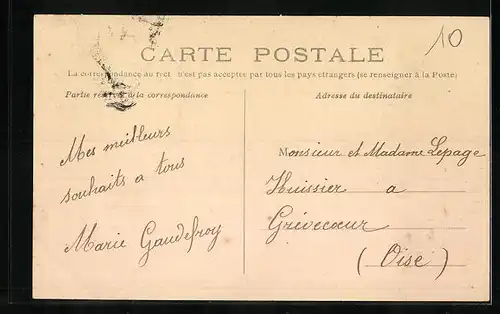 10
CARTE POSTALE
La correspondance au rect n'est pas acceptée par tous les pays étrangers (se renseigner à la Poste)
Partie rés de la correspondance
Adresse du destinataire
Mes meilleurs
souhaits a tous
Marie Gaudefroy
Monsieur et Madame Lepage
Huissier a
Grévecœur
(Oise)